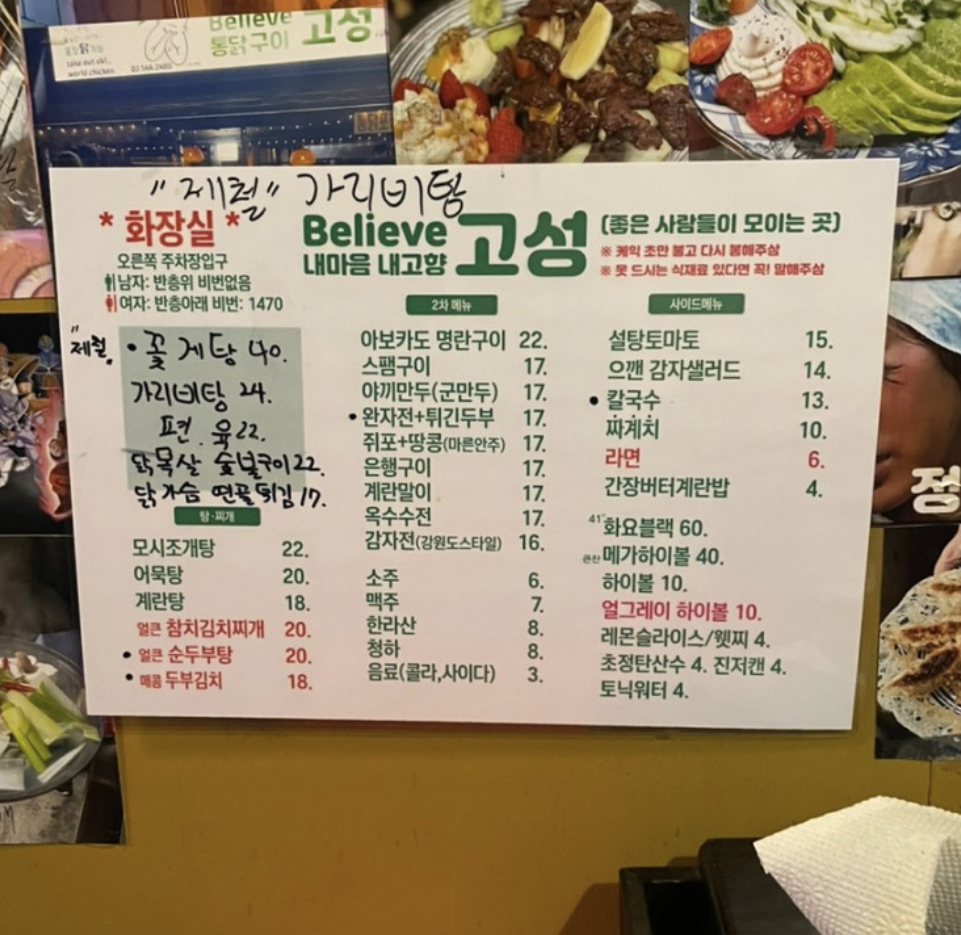 Believe
통닭구이 고성
take out ok!.
world chicken.
"제철" 가리비탕
* 화장실 *
오른쪽 주차장입구
남자: 반층위 비번없음
여자: 반층아래 비번: 1470
Believe 고성
내마음 내고향
(좋은 사람들이 모이는 곳)
※ 케익 초만 불고 다시 봉해주삼
※ 못 드시는 식재료 있다면 꼭! 말해주삼
"제철" • 꽃게탕 40.
가리비탕 24.
편.육 22.
닭목살 숯불구이 22.
닭가슴 연골튀김 17.
탕·찌개
모시조개탕 22.
어묵탕 20.
계란탕 18.
얼큰 참치김치찌개 20.
• 얼큰 순두부탕 20.
• 매콤 두부김치 18.
2차 메뉴
아보카도 명란구이 22.
스팸구이 17.
야끼만두(군만두) 17.
• 완자전+튀긴두부 17.
쥐포+땅콩(마른안주) 17.
은행구이 17.
계란말이 17.
옥수수전 17.
감자전(강원도스타일) 16.
소주 6.
맥주 7.
한라산 8.
청하 8.
음료(콜라,사이다) 3.
사이드메뉴
설탕토마토 15.
으깬 감자샐러드 14.
• 칼국수 13.
짜계치 10.
라면 6.
간장버터계란밥 4.
41° 화요블랙 60.
큰잔 메가하이볼 40.
하이볼 10.
얼그레이 하이볼 10.
레몬슬라이스/웻찌 4.
초정탄산수 4. 진저캔 4.
토닉워터 4.
정